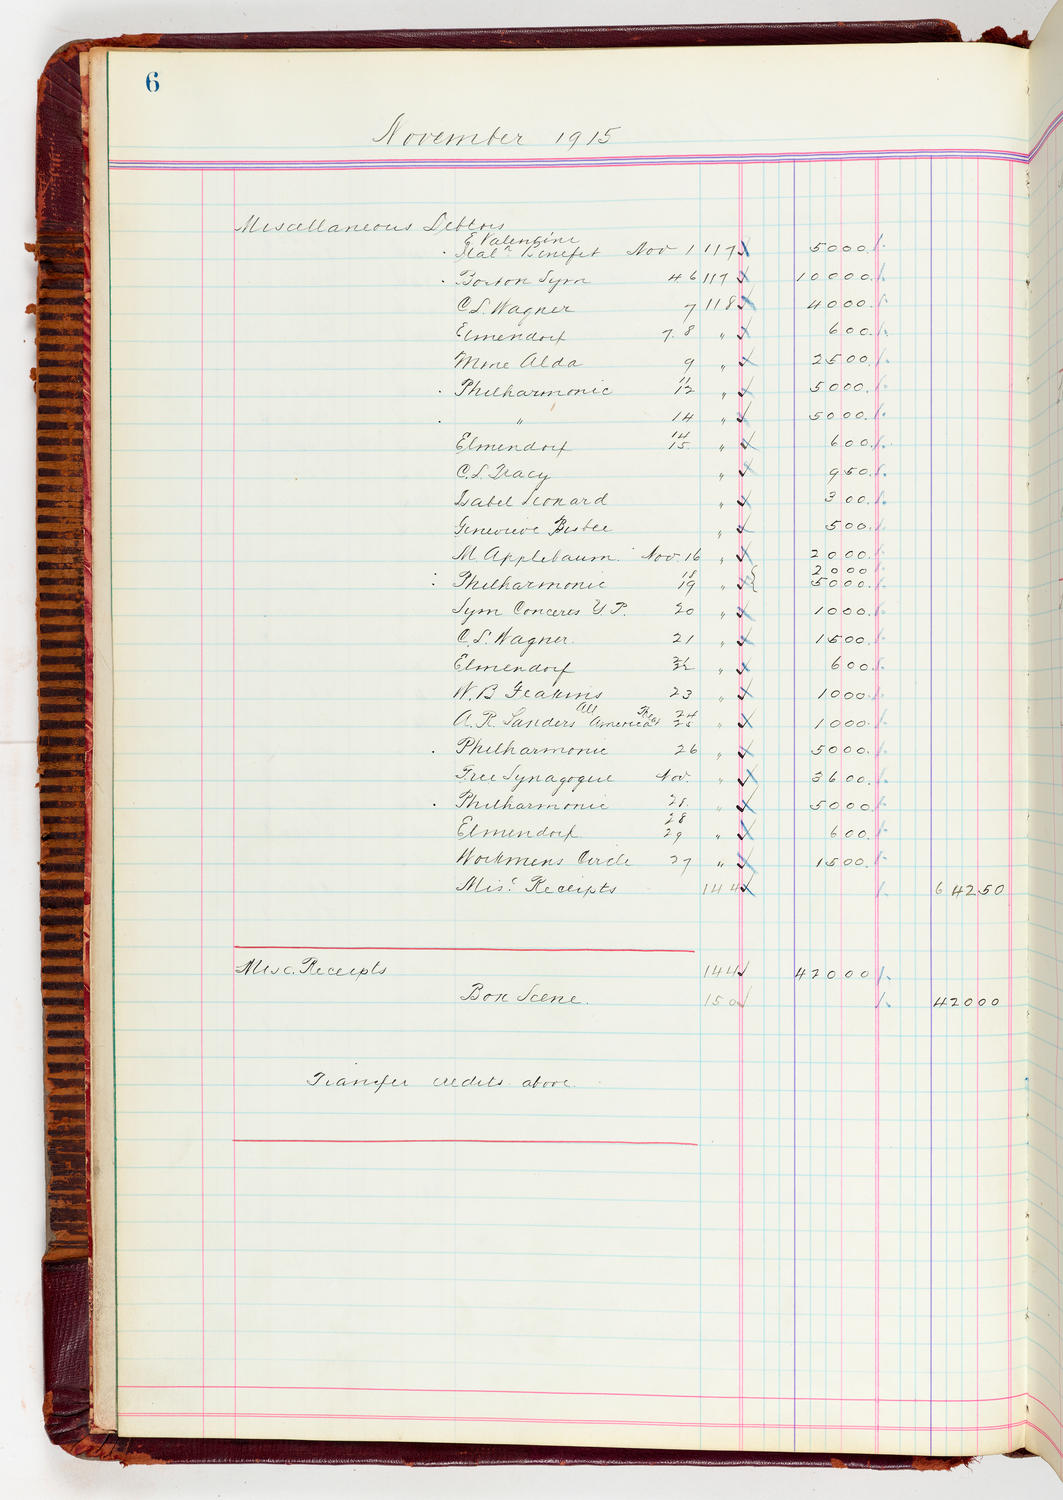 6
November 1915
Miscellaneous Debtors
E Valentine
Ital'n Benefit Nov 1 117 50 00
Boston Sym 4.6 117 100 00
C. L. Wagner 7 118 40 00
Elmendorf 7. 8 " 6 00
Mme Alda 9 " 25 00
Philharmonic 11 12 " 50 00
" 14 " 50 00
Elmendorf 14 15 " 6 00
C. L. Tracy " 9 50
Isabel Leonard " 3 00
Genevieve Bisbee " 5 00
M. Applebaum Nov. 16 " 20 00
20 00
Philharmonic 18 19 " 50 00
Sym Concerts Y. P. 20 " 10 00
C. L. Wagner 21 " 15 00
Elmendorf 22 " 6 00
W. B Feakins 23 " 10 00
A. R. Sanders All Americas 24 25 " 10 00
Philharmonic 26 " 50 00
Free Synagogue Nov. " 36 00
Philharmonic 28. " 50 00
Elmendorf 28 29 " 6 00
Workmens Circle 27 " 15 00
Mis. Receipts 144 642 50
Misc. Receipts 144 420 00
Box Scene. 150 420 00
Transfer credits above